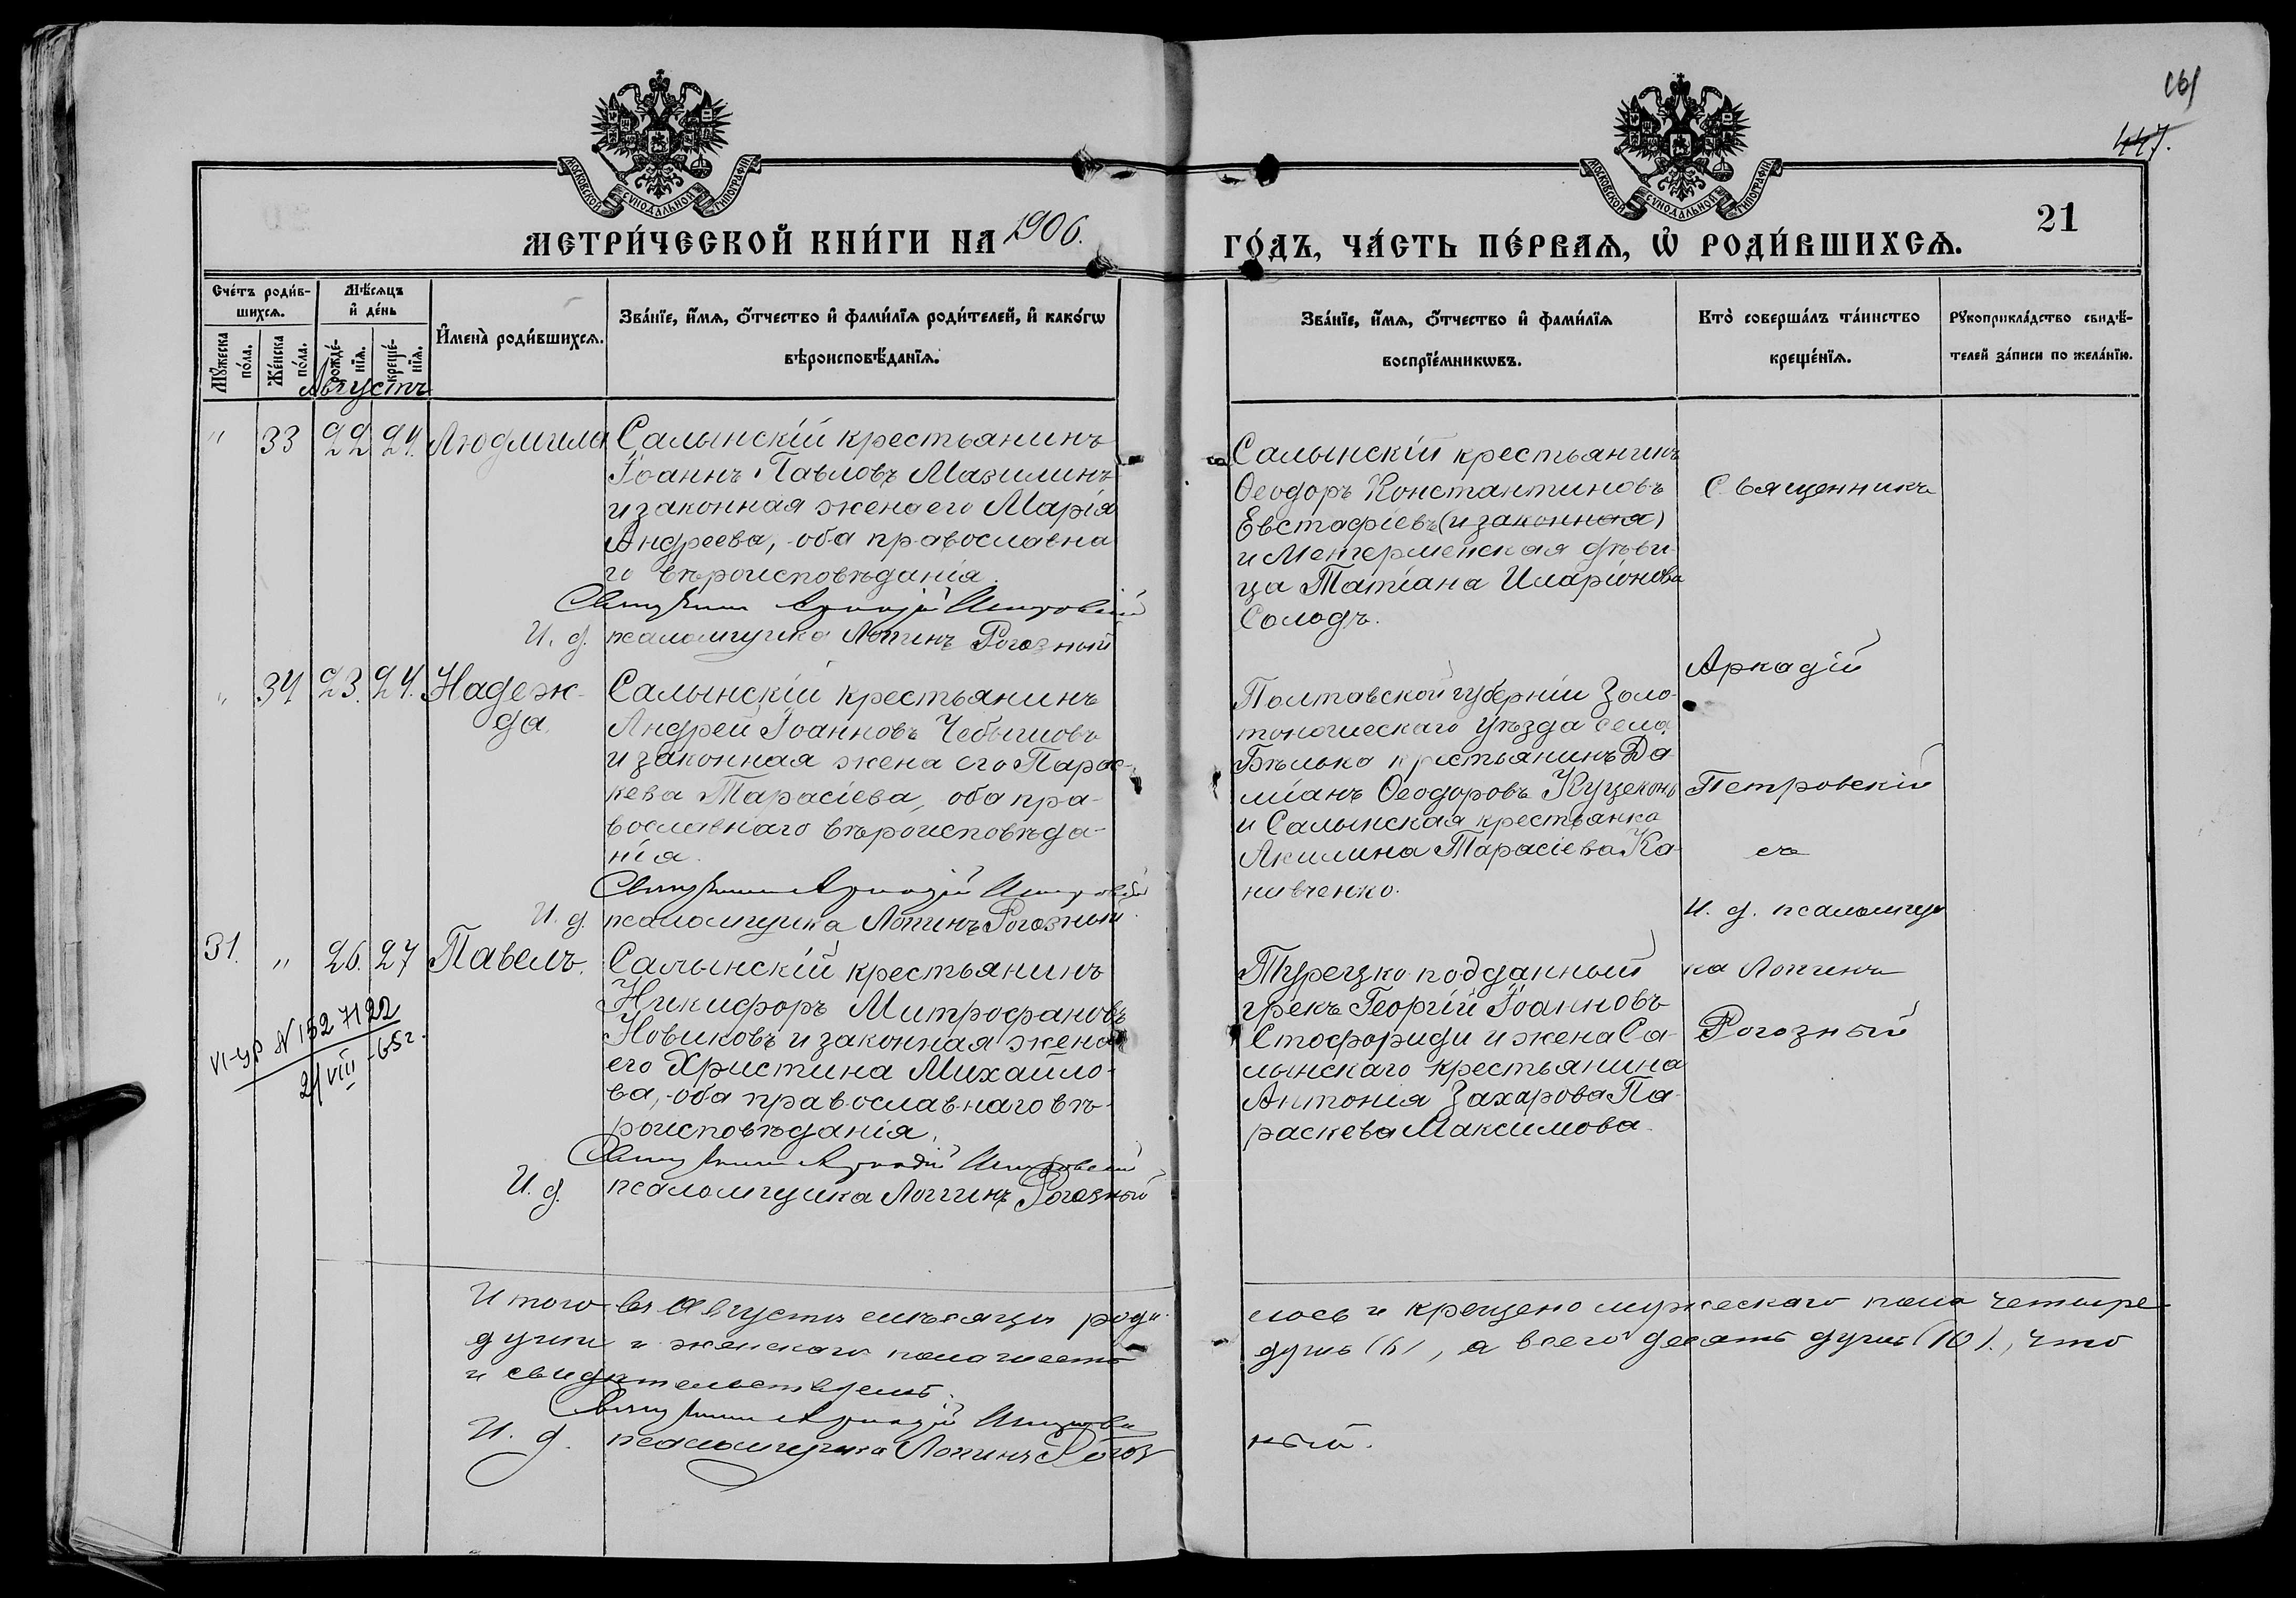 161
447.
МОСКОВСКОЙ СѴНОДАЛЬНОЙ ТИПОГРАФІИ
МОСКОВСКОЙ СѴНОДАЛЬНОЙ ТИПОГРАФІИ
21
МЕТРИ́ЧЕСКОЙ КНИ́ГИ НА 1906.
ГО́ДЪ, ЧА́СТЬ ПЕ́РВАѦ, Ѡ҆ РОДИ́ВШИХСѦ.
Сче́тъ роди́в-
шихсѧ.
Мꙋ́жеска по́ла.
Же́нска по́ла.
Мѣ́сѧцъ
и҆ де́нь
рожде́-нїѧ.
креще́-нїѧ.
И҆мена̀ роди́вшихсѧ.
Зва́нїе, и҆́мѧ, ѻ҆́тчество и҆ фами́лїѧ роди́телей, и҆ како́гѡ
вѣроисповѣ́данїѧ.
Зва́нїе, и҆́мѧ, ѻ҆́тчество и҆ фами́лїѧ
воспрїе́мникѡвъ.
Кто̀ соверша́лъ та́инство
креще́нїѧ.
Рꙋкоприкла́дство свидѣ́-
телей за́писи по жела́нїю.
Августъ
" 33 22 24. Людмила
Салынскій крестьянинъ
Іоаннъ Павловъ Мазилинъ
и законная жена его Марія
Андреева, оба православна
го вѣроисповѣданія.
Священникъ Аркадій Петровскій
И. д. псаломщика Логгинъ Рогозный
Салынскій крестьянинъ
Ѳеодоръ Константиновъ
Евстафіевъ (и законная)
и Менгерменская дѣви-
ца Татіана Иларіонова
Солодъ.
" 34 23. 24. Надеж-
да.
Салынскій крестьянинъ
Андрей Іоанновъ Чебышовъ
и законная жена его Парас-
кева Тарасіева, оба пра-
вославнаго вѣроисповѣда-
нія.
Священникъ Аркадій Петровскій
И. д. псаломщика Логгинъ Рогозный.
Полтавской губерніи Золо-
тоношескаго уѣзда села
Бѣлька крестьянинъ Да-
міанъ Ѳеодоровъ Куцеконь
и Салынская крестьянка
Акилина Тарасіева Ка-
нивченко.
31. " 26. 27 Павелъ.
Салынскій крестьянинъ
Никифоръ Митрофановъ
Новиковъ и законная жена
его Христина Михайло-
ва, оба православнаго вѣ-
роисповѣданія.
Священникъ Аркадій Петровскій
И. д. псаломщика Логгинъ Рогозный
Турецко-подданный
грекъ Георгій Іоанновъ
Стофориди и жена Са-
лынскаго крестьянина
Антонія Захарова Па-
раскева Максимова.
Священникъ
Аркадій
Петровскій
съ
И. д. псаломщи
ка Логгинъ
Рогозный
VI-ур № 1527122
21/VIII-65г.
Итого въ Августѣ мѣсяцѣ роди-
лось и крещено мужескаго пола четыре
души и женскаго пола шесть
душъ (6), а всего десять душъ (10), что
и свидѣтельствуемъ.
Священникъ Аркадій Петровскій
И. д. псаломщика Логгинъ Рогоз
ный.